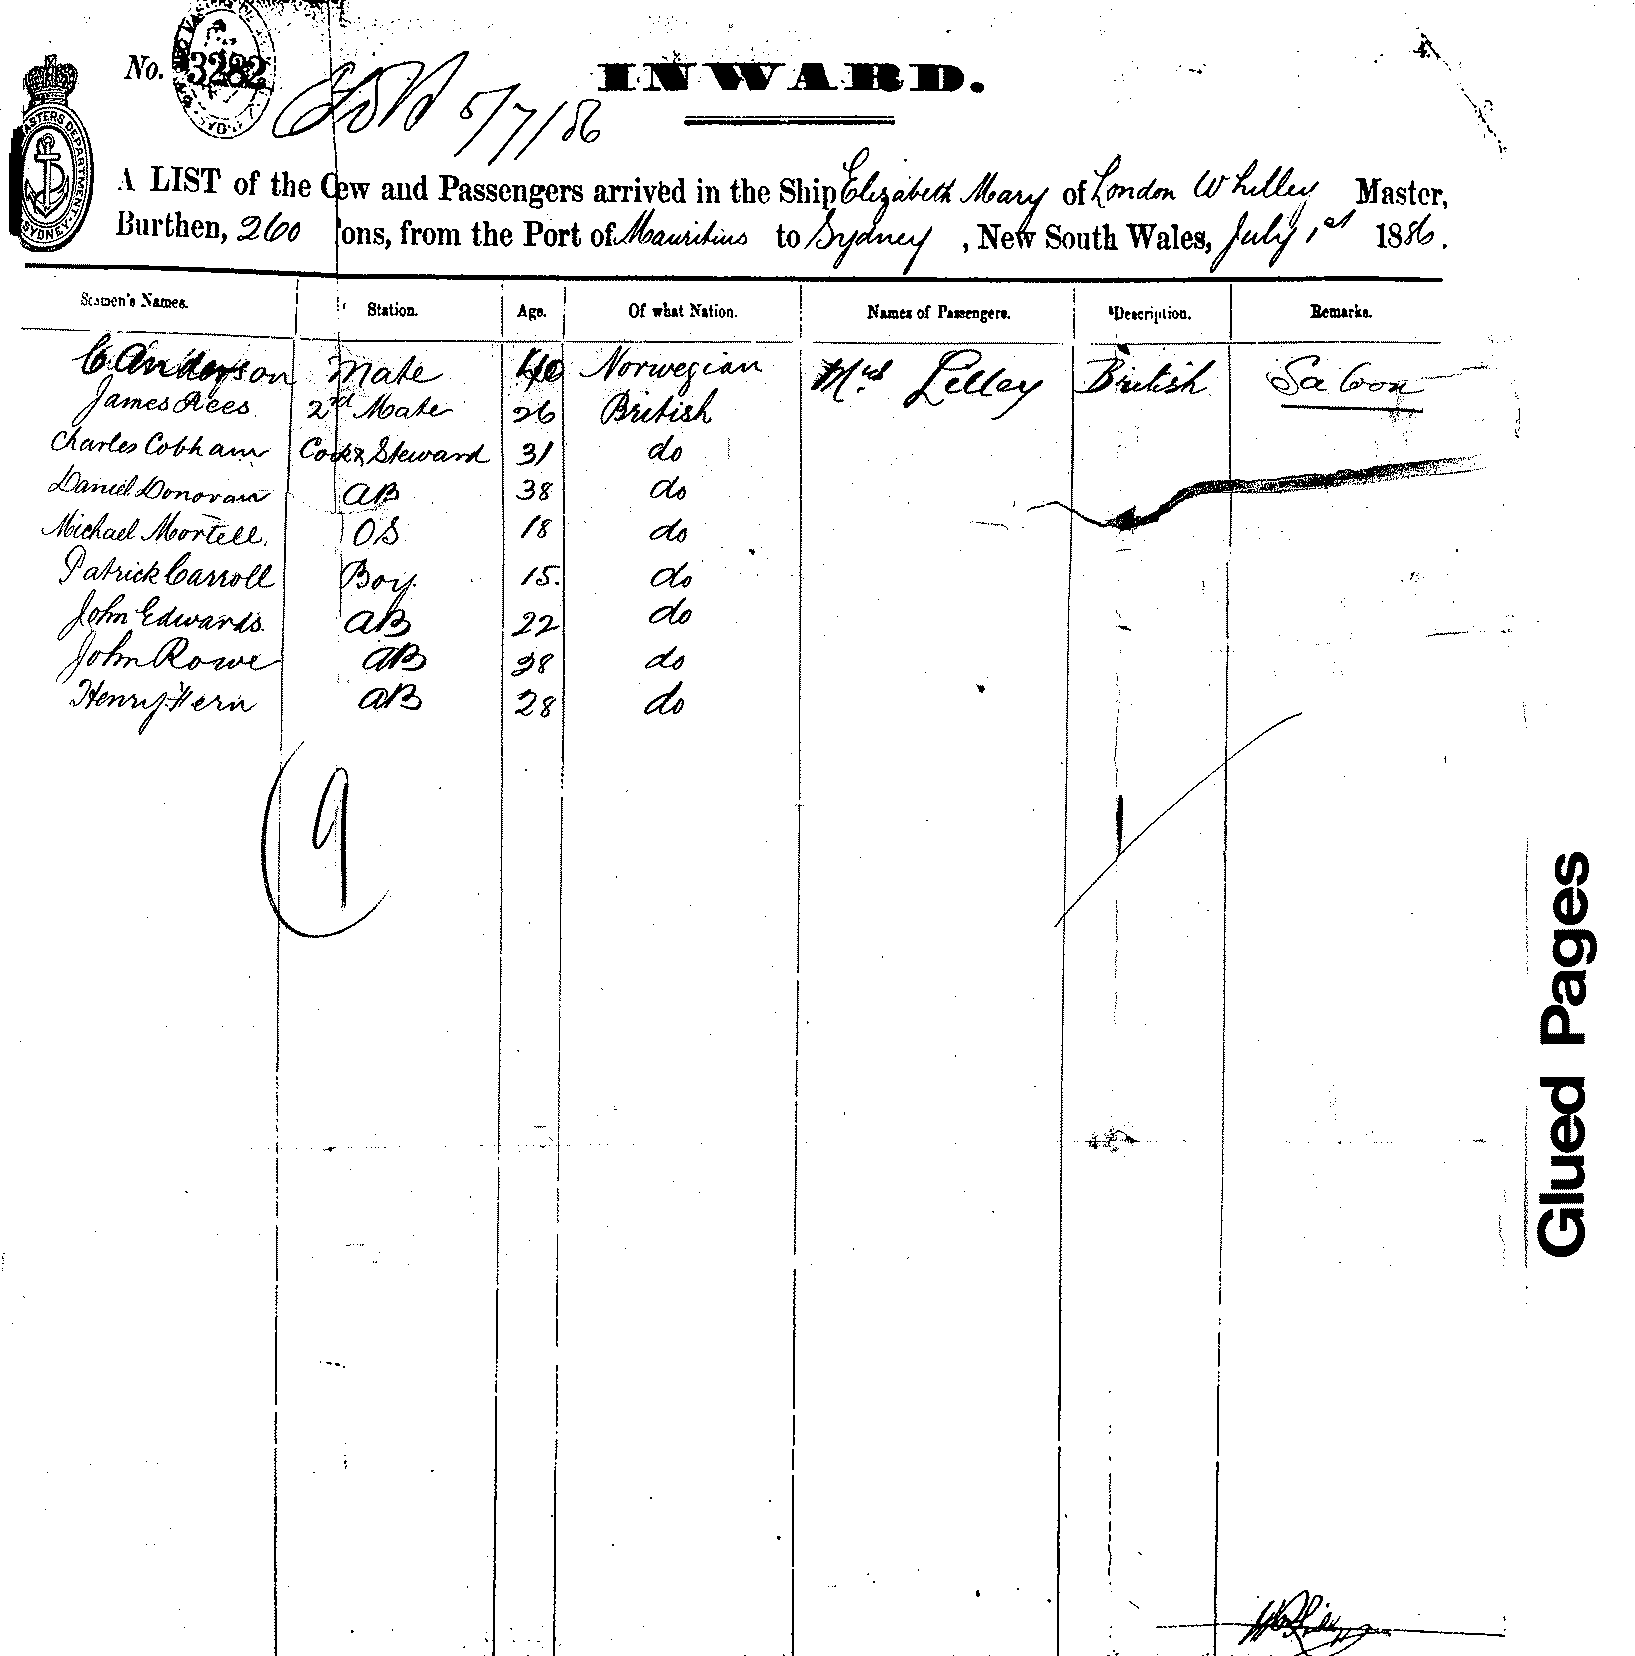 No. 3282
5/7/86
INWARD.
A LIST of the C ew and Passengers arrived in the Ship Elizabeth Mary of London W Lilley Master,
Burthen, 260 'ons, from the Port of Mauritius to Sydney, New South Wales, July 1st 1886.
Seamen's Names. Station. Age. Of what Nation. Names of Passengers. Description. Remarks.
C Anderson Mate 40 Norwegian Mrs Lilley British Saloon
James Rees 2nd Mate 26 British
Charles Cobham Cook & Steward 31 do
Daniel Donovan AB 38 do
Michael Mortell. OS 18 do
Patrick Carroll Boy. 15. do
John Edwards. AB 22 do
John Rowe AB 38 do
Henry Hern AB 28 do
9
Glued Pages